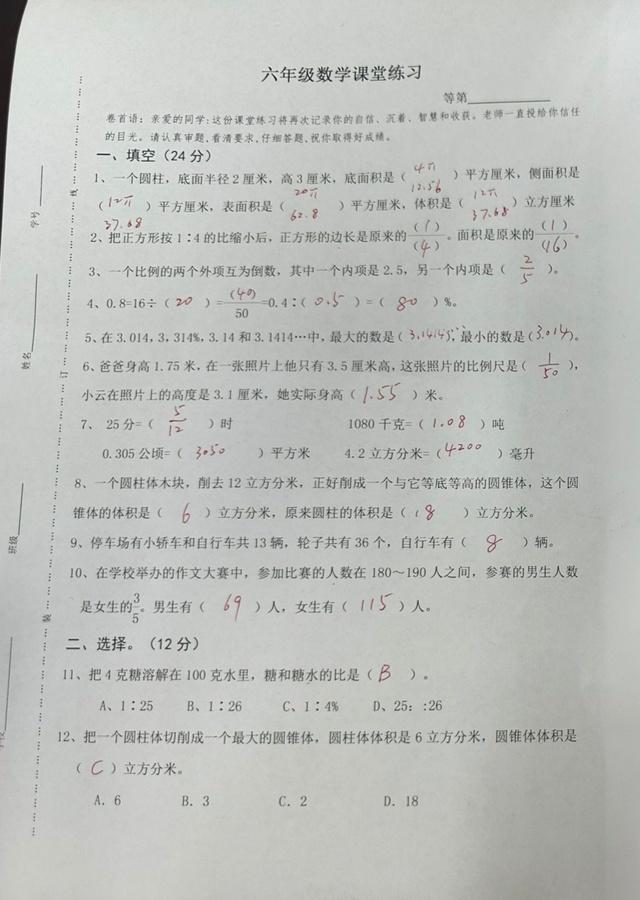 六年级数学课堂练习
等第
卷首语：亲爱的同学：这份课堂练习将再次记录你的自信、沉着、智慧和收获。老师一直投给你信任
的目光。请认真审题，看清要求，仔细答题，祝你取得好成绩。
一、填空（24分）
1、一个圆柱，底面半径2厘米，高3厘米，底面积是（4π 12.56）平方厘米，侧面积是
（12π 37.68）平方厘米，表面积是（20π 62.8）平方厘米，体积是（12π 37.68）立方厘米
2、把正方形按1∶4的比缩小后，正方形的边长是原来的(1)/(4)。面积是原来的(1)/(16)。
3、一个比例的两个外项互为倒数，其中一个内项是2.5，另一个内项是（2/5）。
4、0.8=16÷（20）=(40)/50=0.4∶（0.5）=（80）%。
5、在3.014，3，314%，3.14和3.1414…中，最大的数是（3.1414…），最小的数是（3.014）。
6、爸爸身高1.75米，在一张照片上他只有3.5厘米高，这张照片的比例尺是（1/50），
小云在照片上的高度是3.1厘米，她实际身高（1.55）米。
7、 25分=（5/12）时 1080千克=（1.08）吨
0.305公顷=（3050）平方米 4.2立方分米=（4200）毫升
8、一个圆柱体木块，削去12立方分米，正好削成一个与它等底等高的圆锥体，这个圆
锥体的体积是（6）立方分米，原来圆柱的体积是（18）立方分米。
9、停车场有小轿车和自行车共13辆，轮子共有36个，自行车有（8）辆。
10、在学校举办的作文大赛中，参加比赛的人数在180～190人之间，参赛的男生人数
是女生的3/5。男生有（69）人，女生有（115）人。
二、选择。（12分）
11、把4克糖溶解在100克水里，糖和糖水的比是（B）。
A、1∶25 B、1∶26 C、1∶4% D、25∶:26
12、把一个圆柱体切削成一个最大的圆锥体，圆柱体体积是6立方分米，圆锥体体积是
（C）立方分米。
A．6 B．3 C．2 D．18
学号
姓名
班级
线
订
装